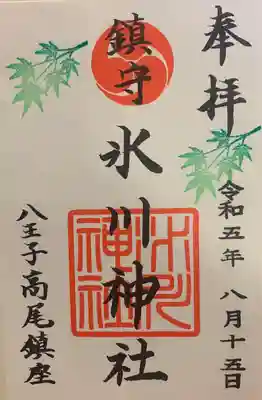 奉拝
令和五年 八月十五日
鎮守 氷川神社
氷川神社
八王子高尾鎮座